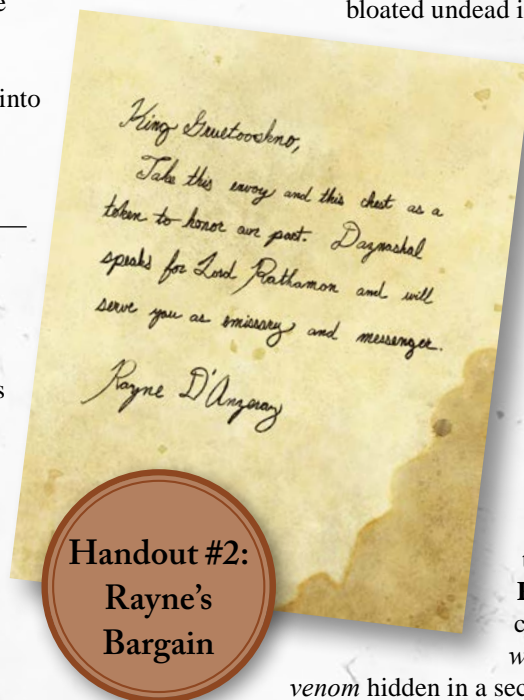 bloated undead i
into
King Gruetooshno,
Take this envoy and this chest as a
token to honor our pact. Daznashal
speaks for Lord Rathamon and will
serve you as emissary and messenger.
Rayne D'Anzoray
Handout #2:
Rayne's
Bargain
venom hidden in a sec